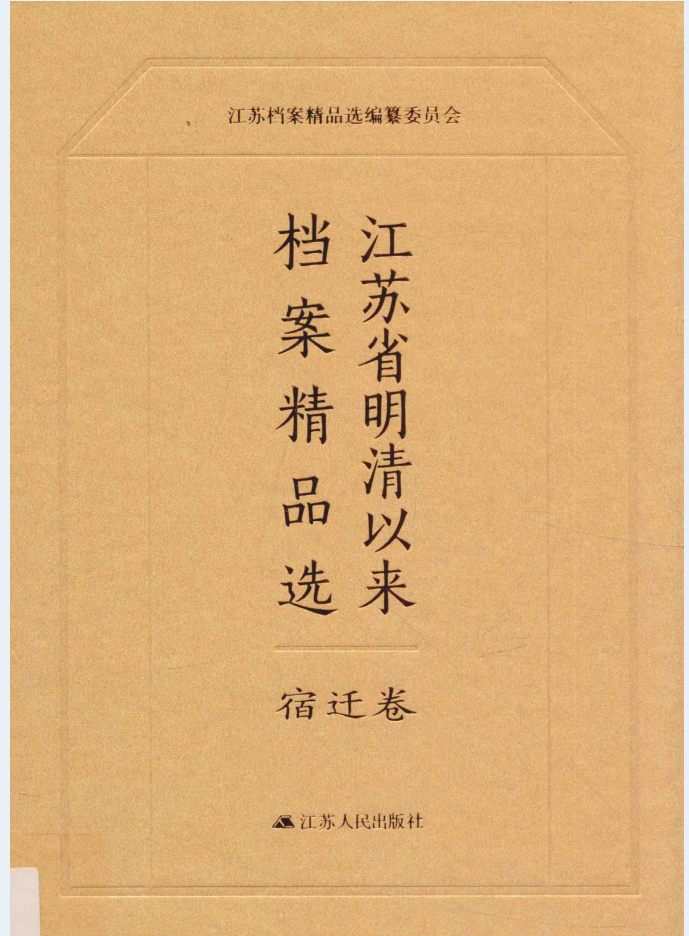 江苏档案精品选编纂委员会
江苏省明清以来
档案精品选
宿迁卷
江苏人民出版社